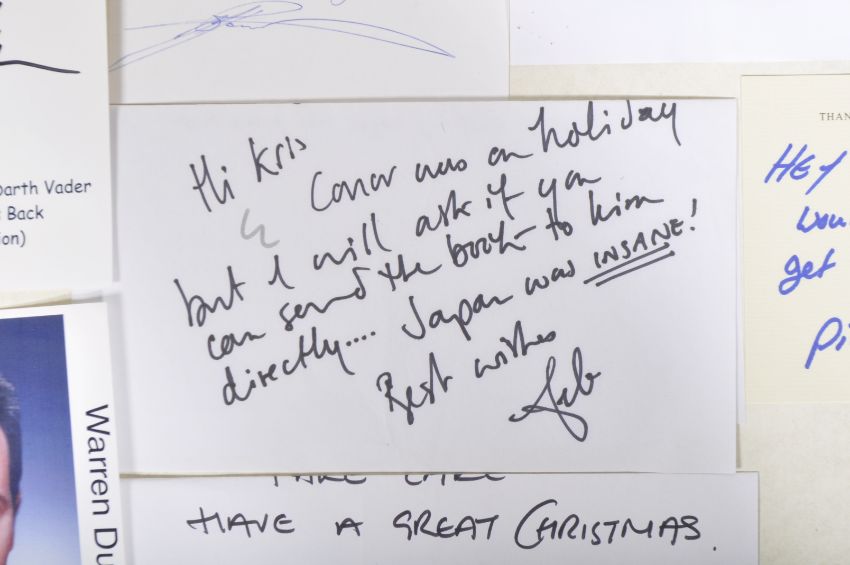 Darth Vader
Back
ion)
Hi Kris
Conor was on holiday
but I will ask if you
can send the book to him
directly.... Japan was INSANE!
Best wishes
THAN
HEY
wou
get
Pi
Warren Du
TAKE CARE
HAVE A GREAT CHRISTMAS.